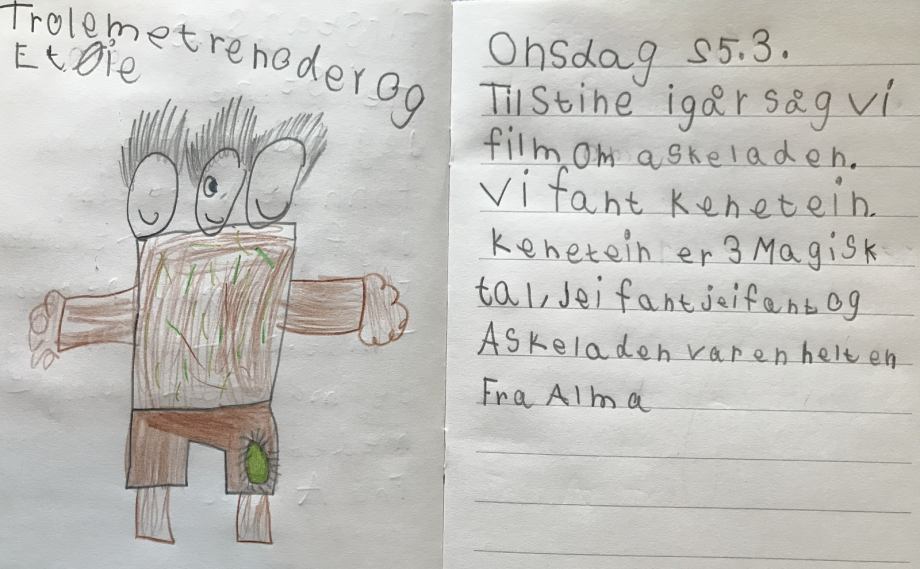 Trolemetrehoder og
Et Øie
Onsdag S5.3.
Til Stine igår såg vi
film om askeladen.
Vi fant kenetein.
kenetein er 3 Magisk
tal, Jei fant jei fant og
ASkeladen var en helt en
Fra Alma